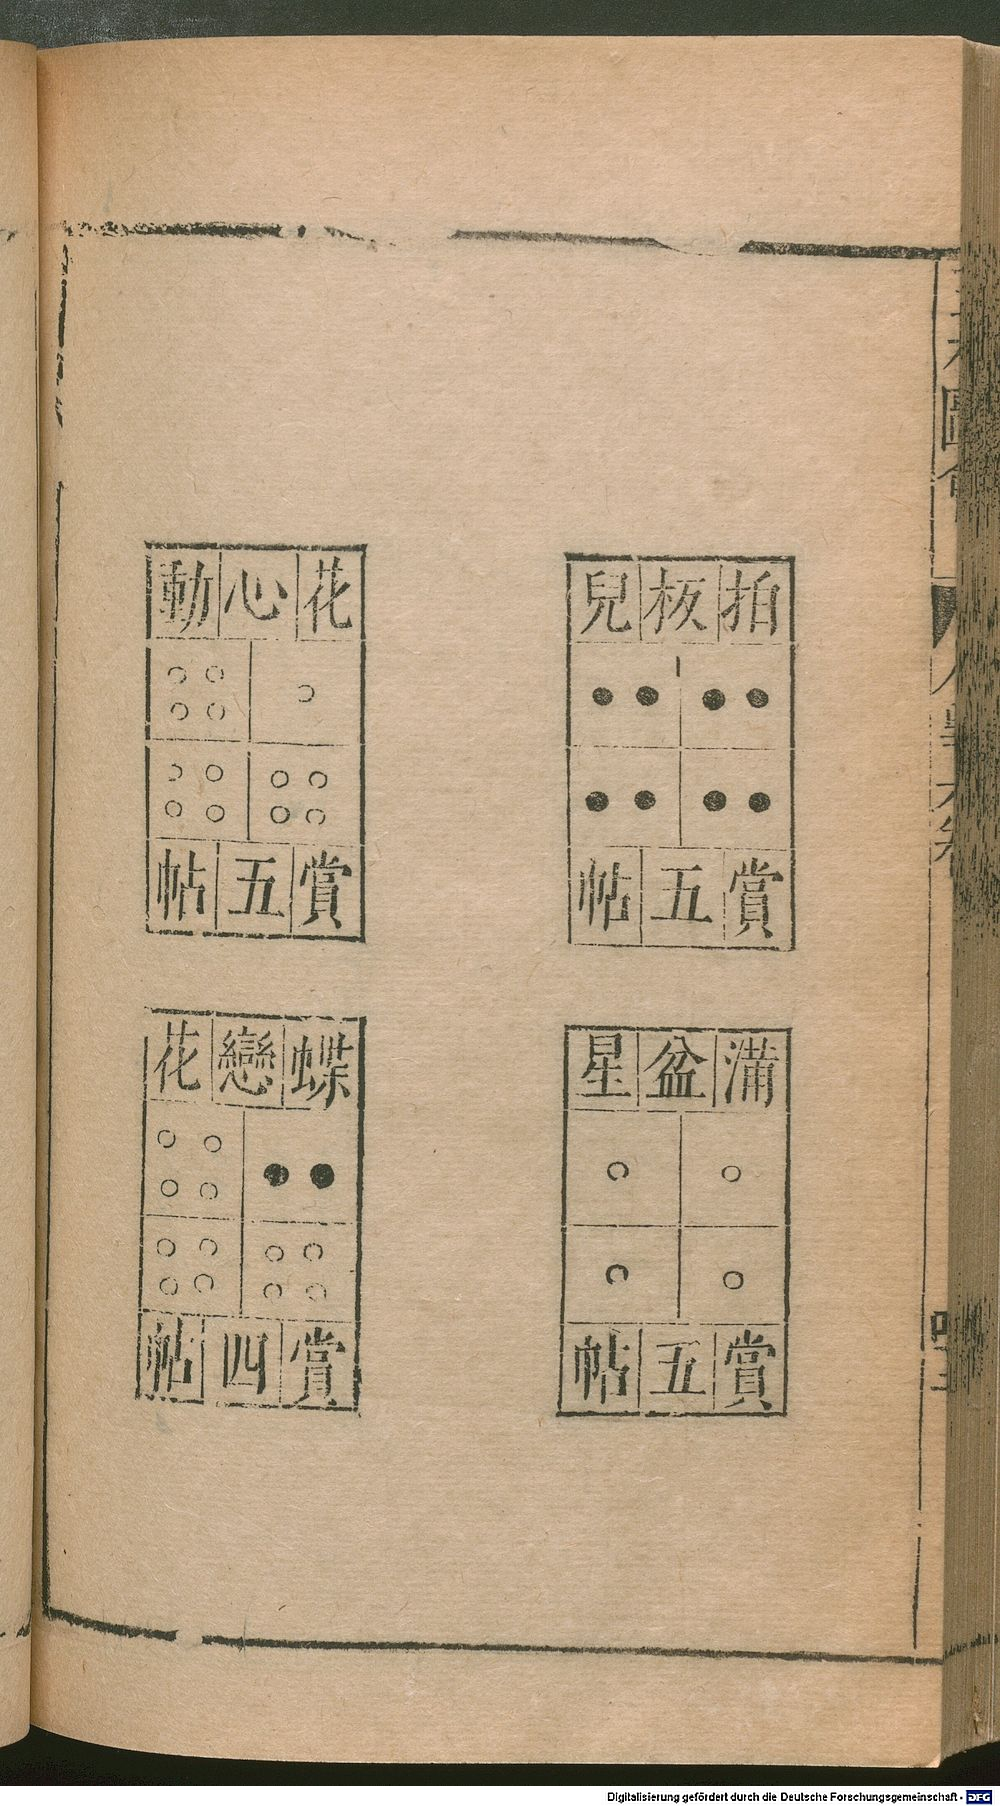 拍板兒
賞五帖
滿盆星
賞五帖
花心動
賞五帖
蝶戀花
賞四帖
Digitalisierung gefördert durch die Deutsche Forschungsgemeinschaft - DFG